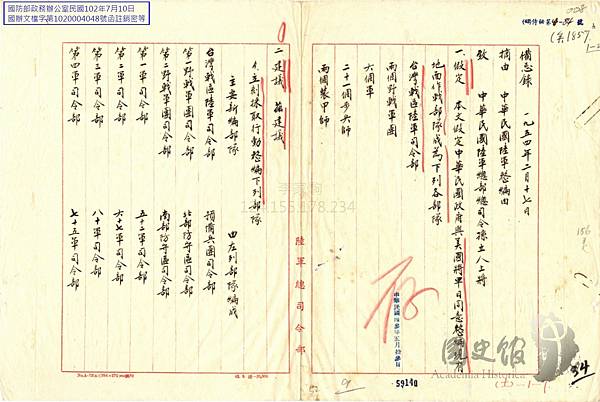 國防部政務辦公室民國102年7月10日
國辦文檔字第1020004048號函註銷密等
008
備忘錄 一九五四年二月十七日
摘由 中華民國陸軍整編由
致 中華民國陸軍總部總司令孫立人上將
一、假定 本文假定中華民國政府與美國將軍日同意整編現有
地面作戰部隊成為下列各部隊
台灣戰區陸軍司令部
兩個野戰軍團
六個軍
二十一個步兵師
兩個裝甲師
二、建議 茲建議
立刻採取行動整編下列部隊
主要新編部隊 由左列部隊編成
台灣戰區陸軍司令部 預備兵團司令部
第一野戰軍團司令部 北部防守區司令部
第二野戰軍團司令部 南部防守區司令部
第一軍司令部 五十二軍司令部
第二軍司令部 六十七軍司令部
第三軍司令部 八十軍司令部
第四軍司令部 七十五軍司令部
陸軍總司令部
存
59140
156
34
國史館
Academia Historica